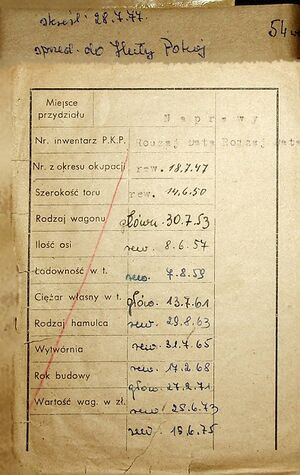 skreśl. 28.7.77.
sprzed. do Huty Pokój
54
Miejsce
przydziału
Naprawy
Nr. inwentarz P.K.P.
Rodzaj data Rodzaj data
Nr. z okresu okupacji rew. 18.7.47
Szerokość toru rew. 14.6.50
Rodzaj wagonu główn. 30.7.53
Ilość osi rew. 8.6.57
Ładowność w t. rew. 7.8.59
Ciężar własny w t. głów. 13.7.61
Rodzaj hamulca rew. 29.8.63
Wytwórnia rew. 31.7.65
Rok budowy rew. 17.2.68
głów. 27.2.71
Wartość wag. w zł. rew. 28.6.73
rew. 18.6.75